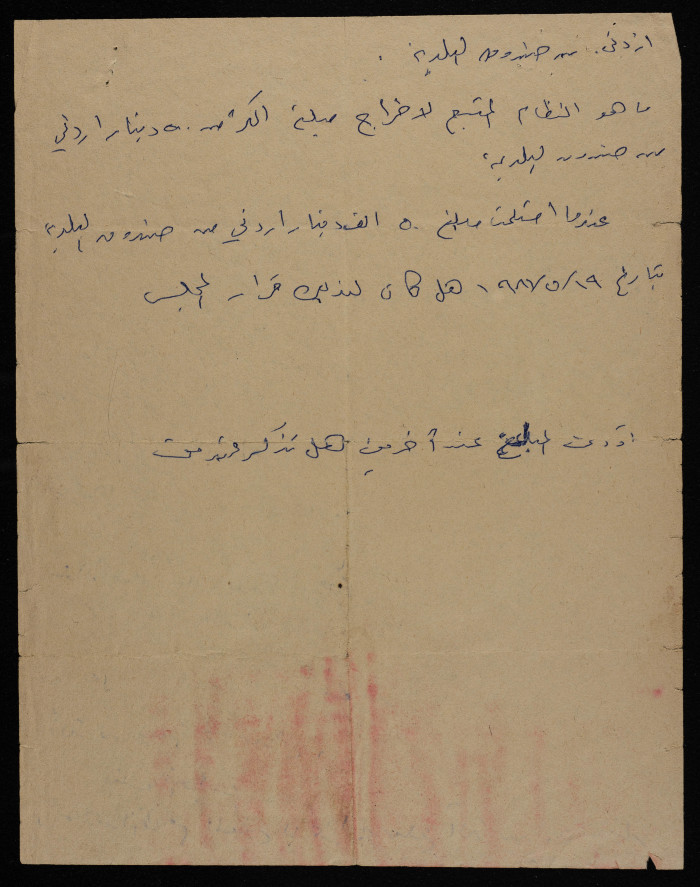 اردني. من صندوق البلدية.
ما هو النظام المتبع لاخراج مبلغ اكثر من ٥٠ دينار اردني
من صندوق البلدية
عندما استلمت مبلغ ٥٠ الف دينار اردني من صندوق البلدية
بتاريخ ١٩٨٧/٥/١٩ هل كان لديك قرار المجلس
اودعت المبلغ عند آخرين هل تذكر